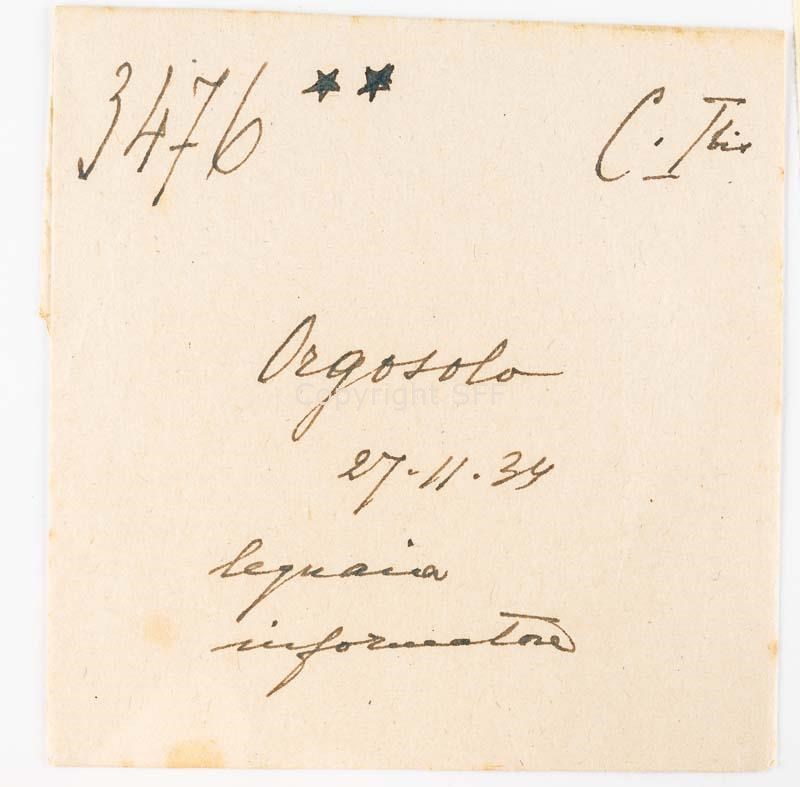 3476 ★★
C. I bis
Orgosolo
Copyright SFF
27.11.34
legnaia
informatore